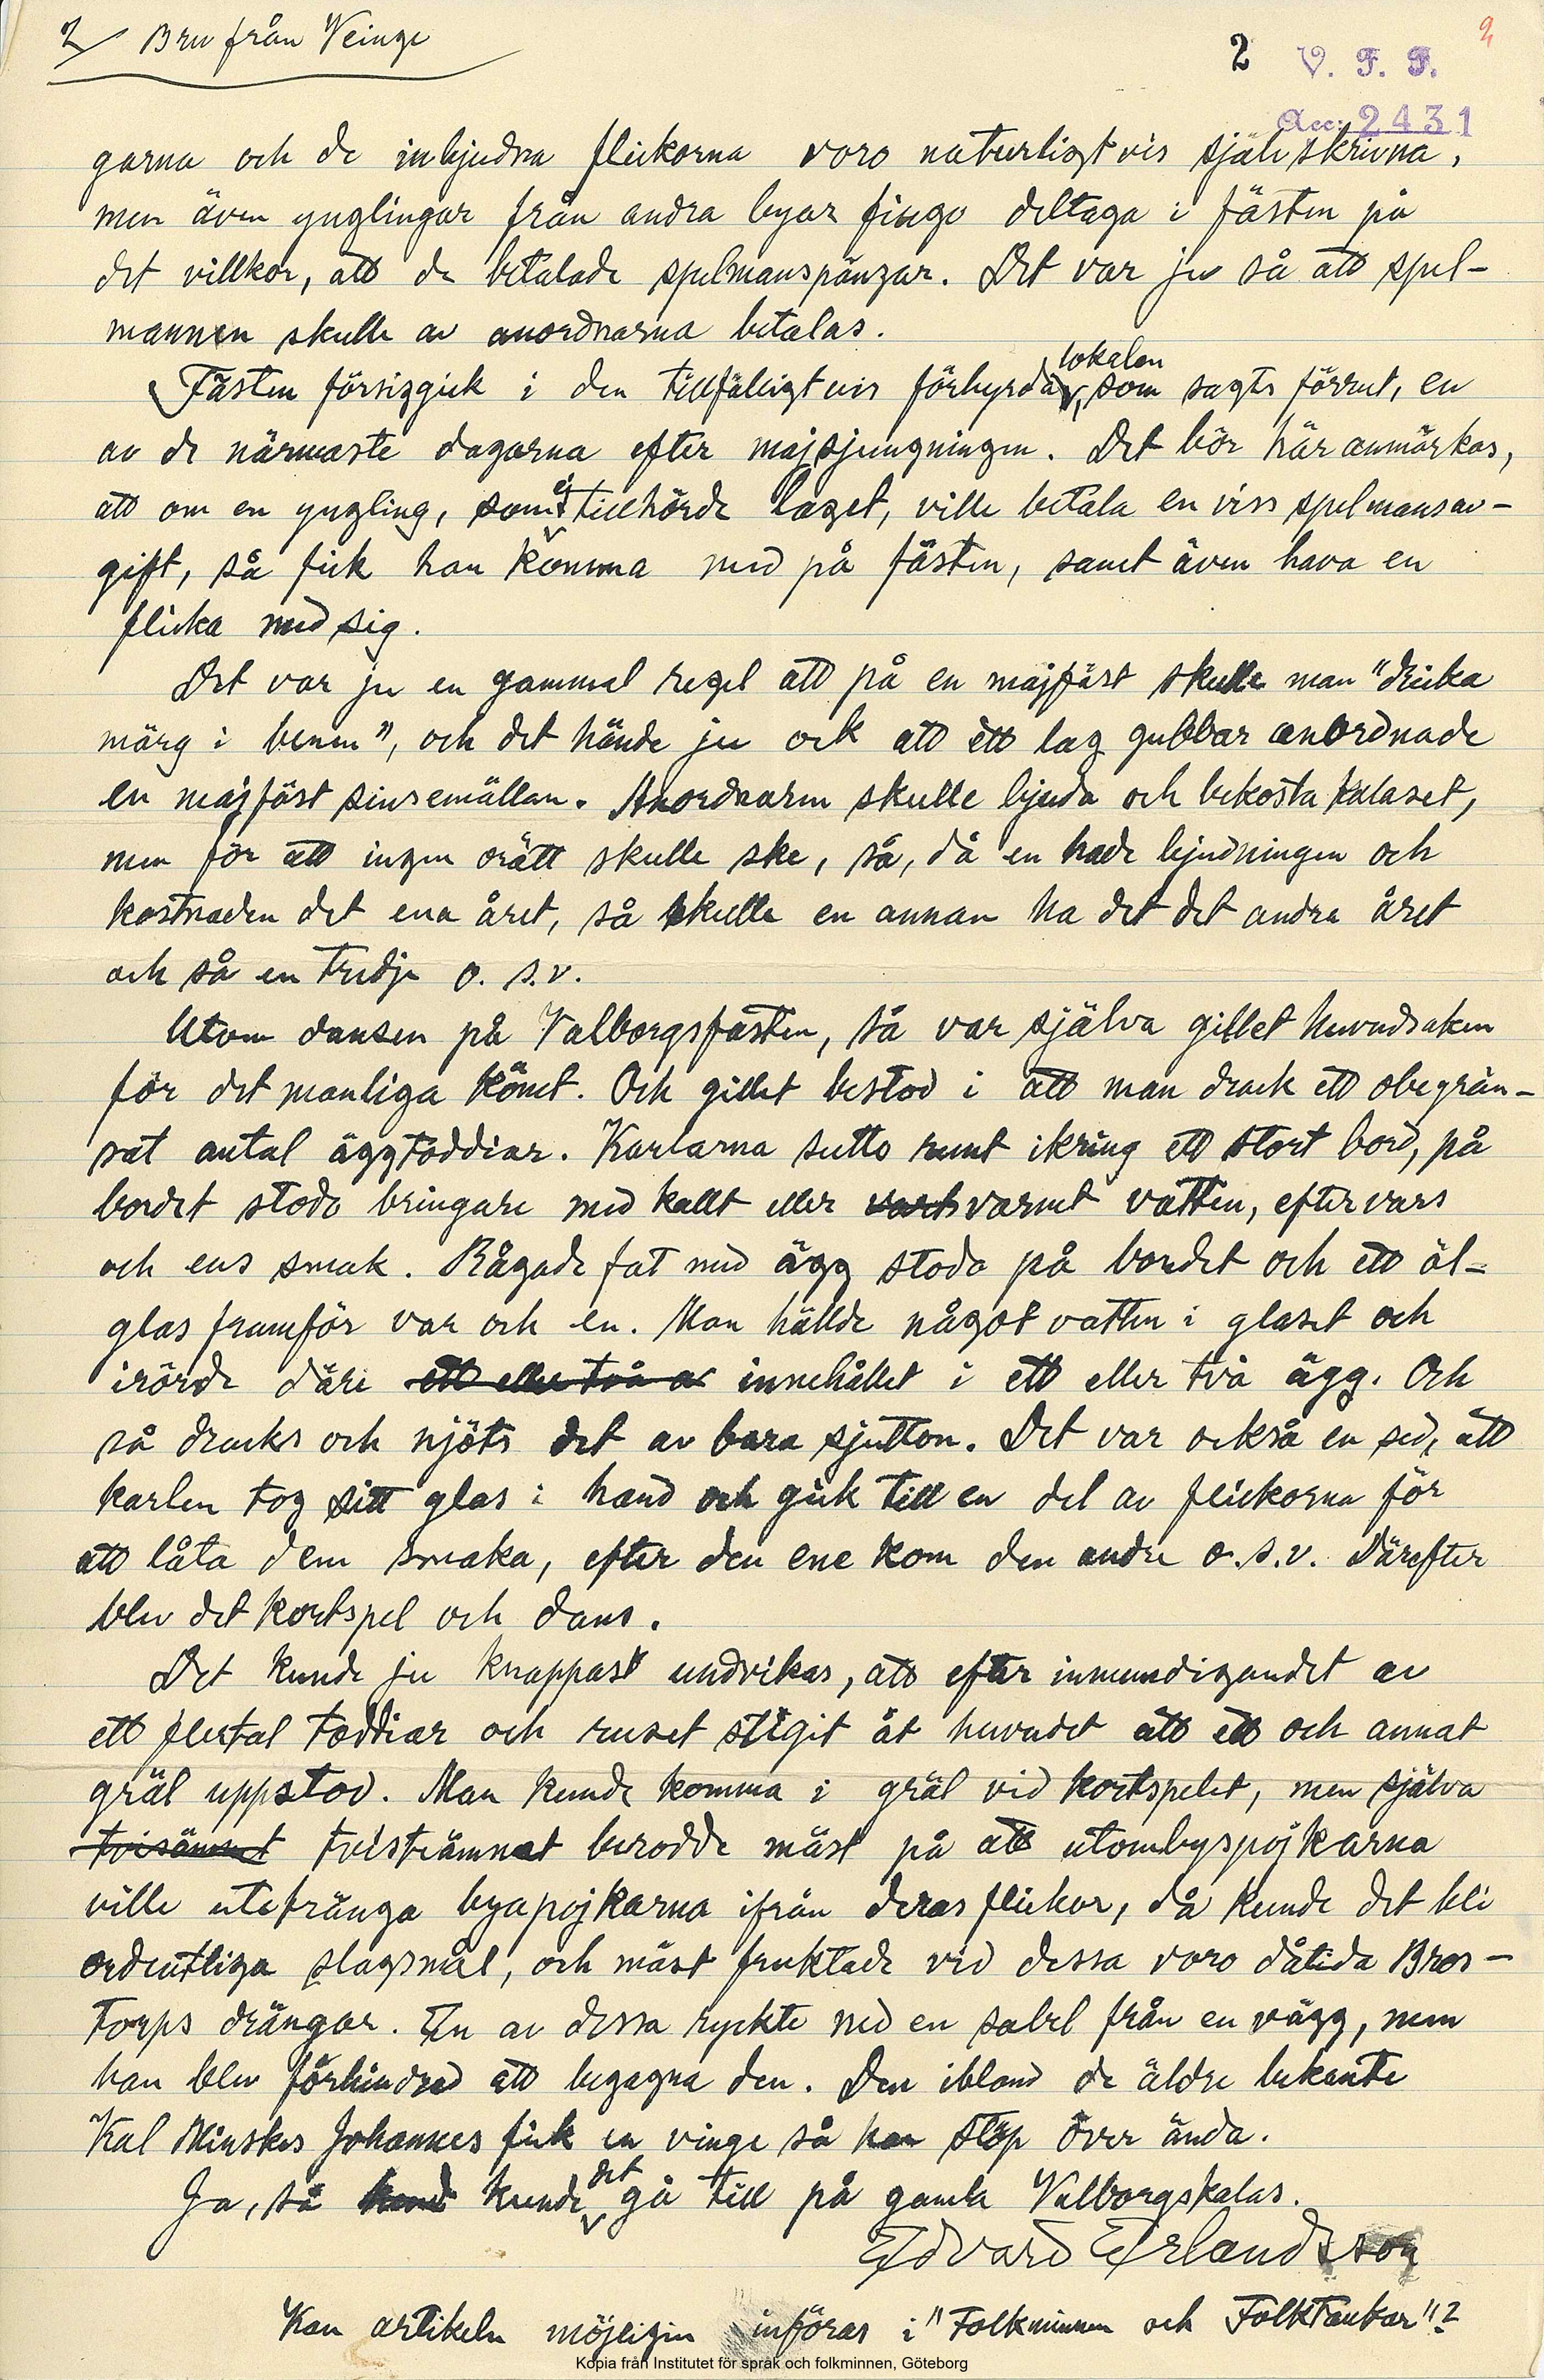 2/ Brev från Veinge
2 V. F. F. 2
Acc: 2431
garna och de inbjudna flickorna voro naturligtvis självskrivna,
men även ynglingar från andra byar fingo deltaga i fästen på
det villkor, att de betalade spelmanspängar. Det var ju så att spel-
mannen skulle av anordnarna betalas.
Fästen försiggick i den tillfälligtvis förhyrda lokalen, som sagts förrut, en
av de närmaste dagarna efter majsjungningen. Det bör här anmärkas,
att om en yngling, som ej tillhörde laget, ville betala en viss spelmansav-
gift, så fick han komma med på fästen, samt även hava en
flicka med sig.
Det var ju en gammal regel att på en majfäst skulle man "dricka
märg i benen", och det hände ju ock att ett lag gubbar anordnade
en majfäst sinsemällan. Anordnaren skulle bjuda och bekosta kalaset,
men för att ingen orätt skulle ske, så, då en hade bjudningen och
kostnaden det ena året, så skulle en annan ha det det andra året
och så en tredje o. s.v.
Utom dansen på Valborgsfästen, så var själva gillet huvudsaken
för det manliga könet. Och gillet bestod i att man drack ett obegrän-
sat antal äggtoddiar. Karlarna sutto runt ikring ett stort bord, på
bordet stodo bringare med kallt eller varmt vatten, efter vars
och ens smak. Rågade fat med ägg stodo på bordet och ett öl-
glas framför var och en. Man hällde något vatten i glaset och
irörde däri ett eller två av innehållet i ett eller två ägg. Och
så dracks och njöts det av bara sjutton. Det var också en sed, att
karlen tog sitt glas i hand och gick till en del av flickorna för
att låta dem smaka, efter den ene kom den andre o.s.v. Därefter
blev det kortspel och dans.
Det kunde ju knappast undvikas, att efter inmundigandet av
ett flertal toddiar och ruset stigit åt huvudet att ett och annat
gräl uppstod. Man kunde komma i gräl vid kortspelet, men själva
tvisämnet tvisteämnet berodde mäst på att utombyspojkarna
ville utetränga byapojkarna ifrån deras flickor, då kunde det bli
ordentliga slagsmål, och mäst fruktade vid dessa voro dåtida Bros-
torps drängar. En av dessa ryckte ned en sabel från en vägg, men
han blev förhindrad att begagna den. Den ibland de äldre bekante
Kal Minskes Johannes fick en vinge så han stöp över ända.
Ja, så kunde det gå till på gamla Valborgskalas.
Edvard Erlandsson
Kan artikeln möjligen införas i "Folkminnen och Folktankar"?
Kopia från Institutet för språk och folkminnen, Göteborg